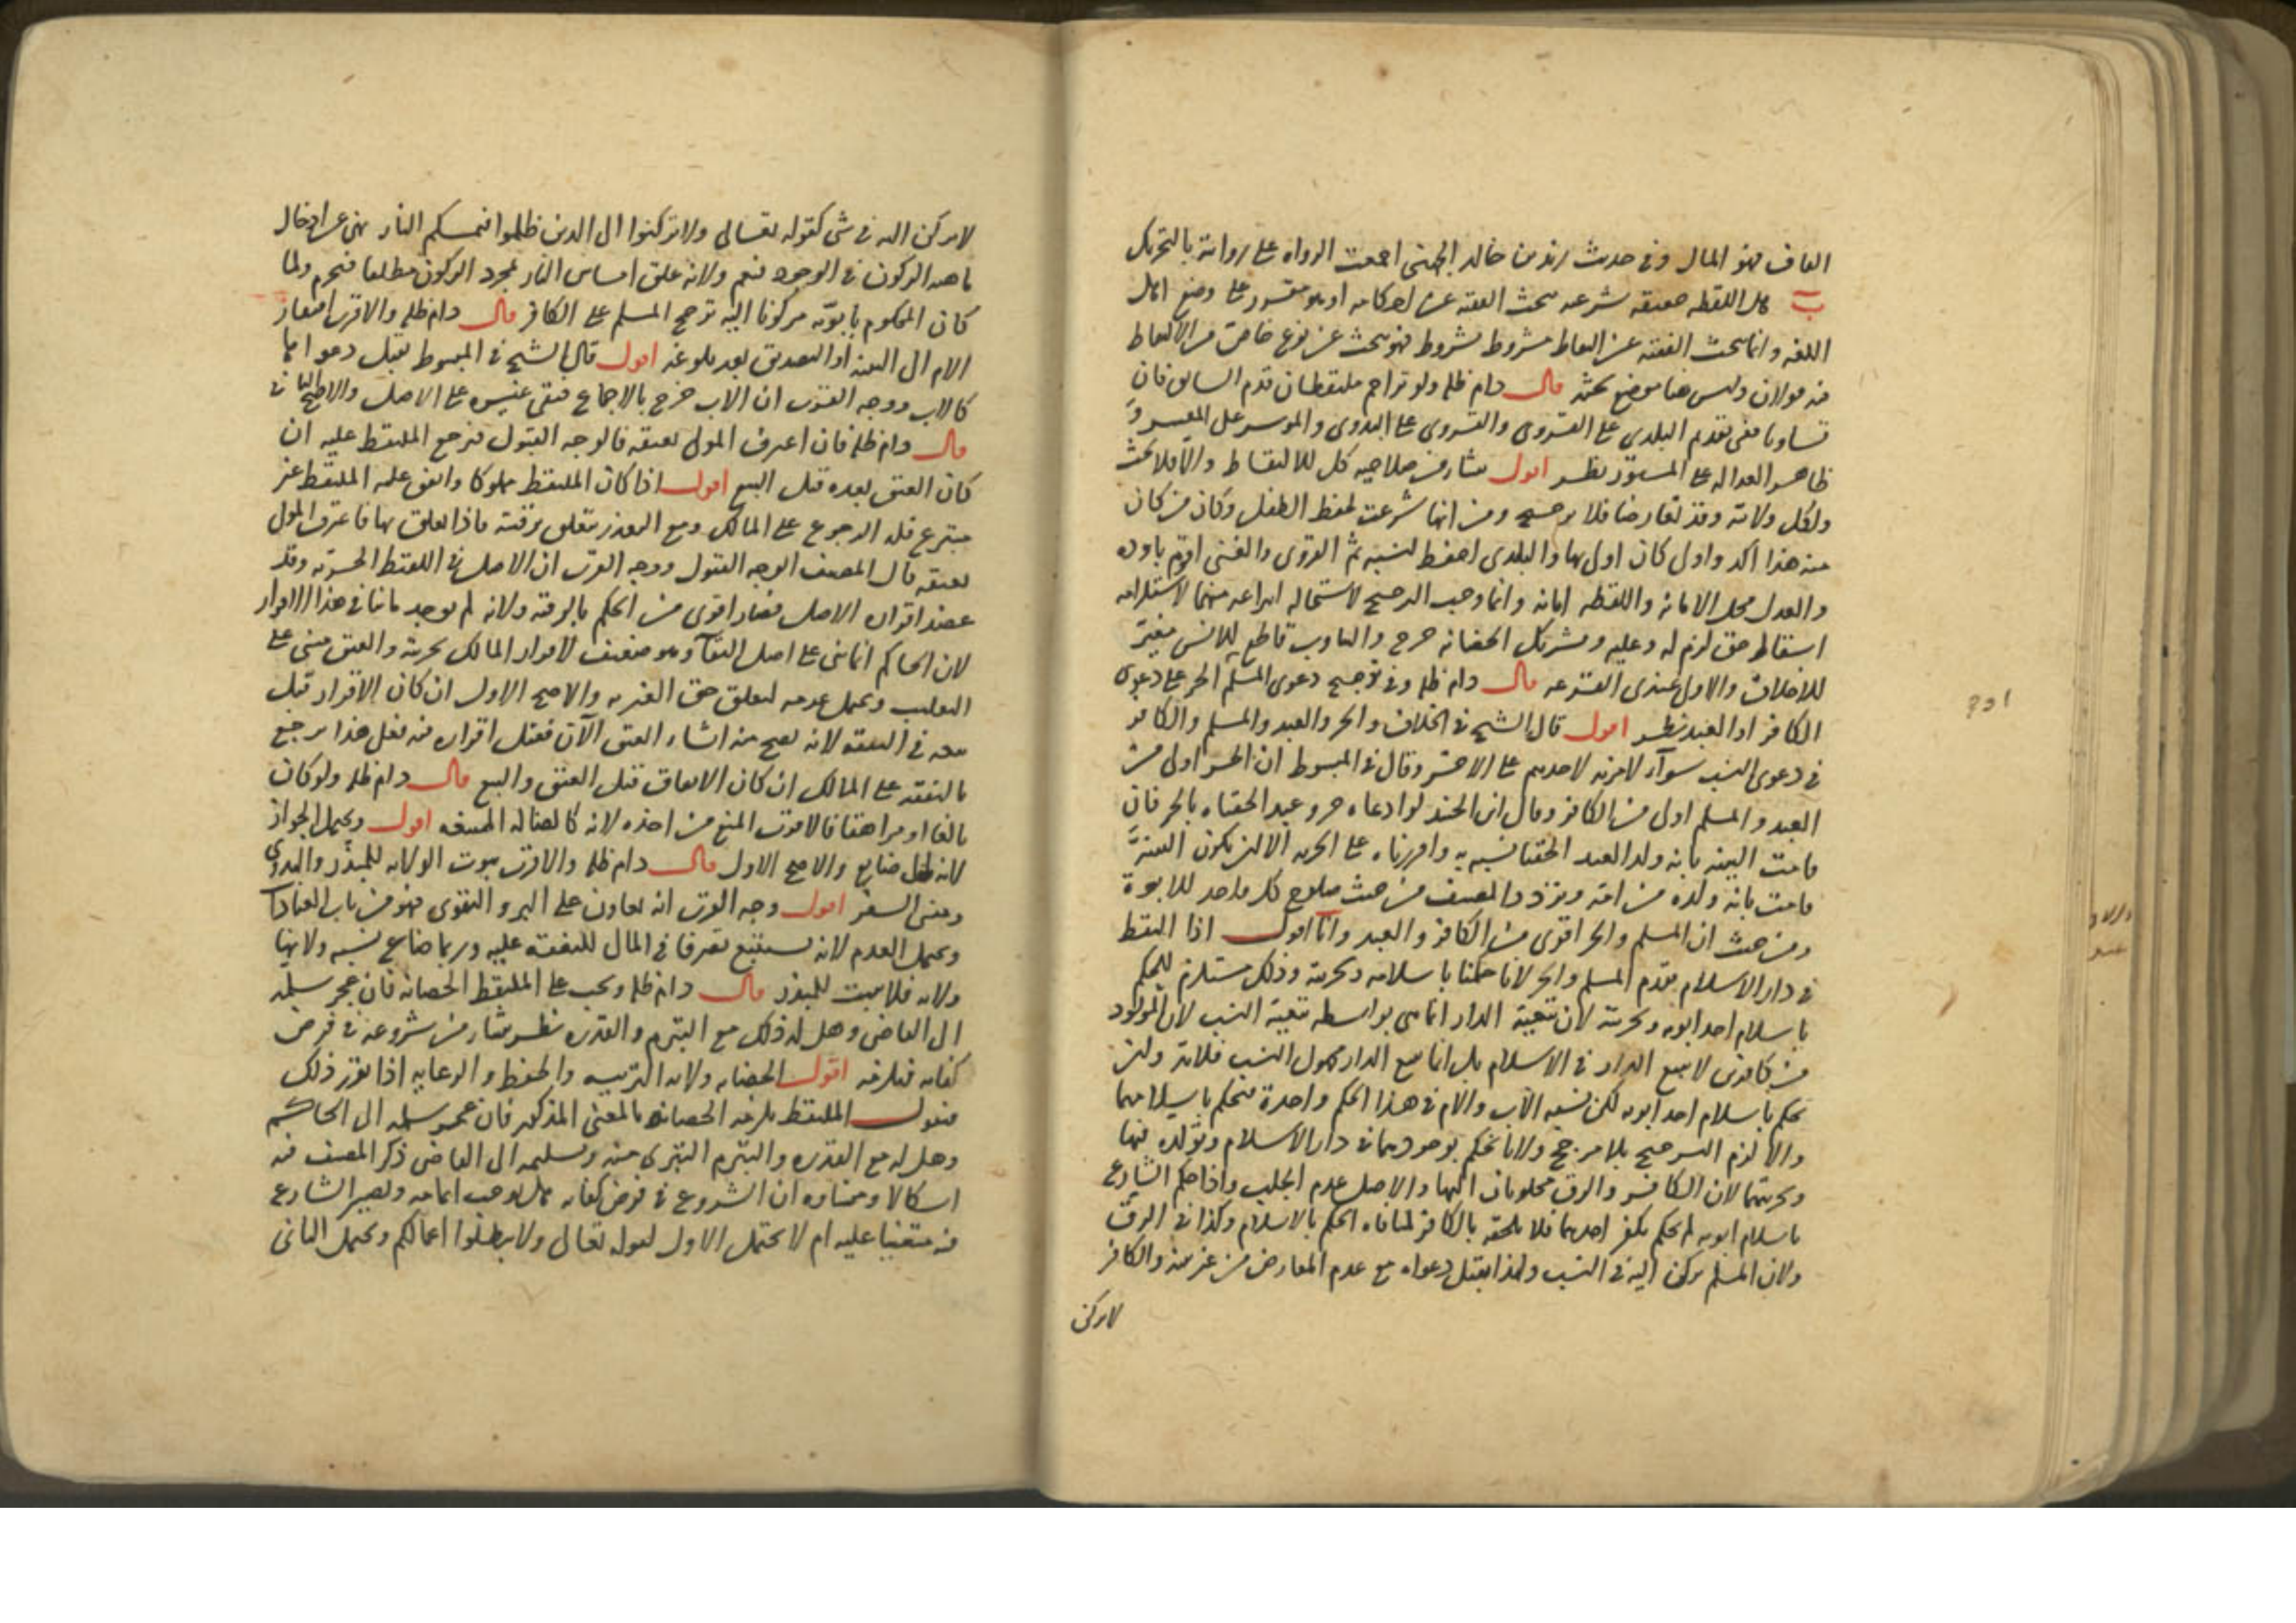 القاف فهو المال وفي حديث زيد بن خالد الجهني اجمعت الرواه على روايته بالتحريك
ب هل اللقطه حقيقه شرعيه يبحث الفقيه عن احكامه او هو مقرر على وضع اهل
اللغه وانما يبحث الفقيه عن التقاط مشروط بشروط فهو يبحث عن نوع خاص من الالتقاط
فيه قولان وليس هنا موضع بحثه قال دام ظله ولو تزاحم ملتقطان قدم السابق فان
تساويا ففي تقديم البلدي على القروي والقروي على البدوي والموسر على المعسر و
ظاهر العداله على المستور نظر اقول ينشا من صلاحيه كل للالتقاط والا فلا بحث
ولكل ولايه وقد تعارضا فلا ترجيح ومن انها شرعت لحفظ الطفل وكان من كان
منه هذا اكد واولى كان اولى بها والبلدي احفظ لنسبه ثم القروي والغني اقوم باوده
والعدل محل الامانه واللقطه امانه وانما وجب الترجيح لاستحاله ايداعه منهما لاستلزامه
اسقاط حق لزم له وعليه وتشريك الحضانه حرج والتناوب قاطع للانس مغير
للاخلاق والاولى عندي القرعه قال دام ظله وفي ترجيح دعوى المسلم الحر على دعوى
الكافر او العبد نظر اقول قال الشيخ في الخلاف والحر والعبد والمسلم والكافر
في دعوى النسب سوآء لا مزيه لاحدهم على الاخر وقال في المبسوط ان الحر اولى من
العبد والمسلم اولى من الكافر وقال ابن الجنيد لو ادعاه حر وعبد الحقناه بالحر فان
قامت البينه بانه ولد العبد الحقنا نسبه به واقررناه على الحريه الا ان تكون البينه
قامت بانه ولده من امته وتردد المصنف من حيث صلاح كل واحد للابوة
ومن حيث ان المسلم والحر اقوى من الكافر والعبد وانا اقول اذا التقط
في دار الاسلام يقدم المسلم والحر لانا حكمنا باسلامه وحريته وذلك مستلزم للحكم
باسلام احد ابويه وحريته لان تبعية الدار انما هي بواسطه تبعية النسب لان المولود
من كافرين لا يتبع الدار في الاسلام بل انما يتبع الدار مجهول النسب فلابد وان
نحكم باسلام احد ابويه لكن نسبه الاب والام في هذا الحكم واحدة فنحكم باسلامهما
والا لزم الترجيح بلا مرجح ولانا نحكم بوجودهما في دار الاسلام وتولده فيها
وحريتهما لان الكافر والرق مجلوبان اليها والاصل عدم الجلب واذا حكم الشارع
باسلام ابويه لم يحكم بكفر احدهما فلا يلحقه بالكافر لمنافاه الحكم بالاسلام وكذا في الرق
ولان المسلم يركن اليه في النسب ولهذا يقبل دعواه مع عدم المعارض من غير بينه والكافر
لا يركن
لا يركن اليه في شي كقوله تعالى ولا تركنوا الى الذين ظلموا فتمسكم النار نهى عن ادخال
ماهيه الركون في الوجود فيعم ولانه علق امساس النار بمجرد الركون مطلقا فيحرم ولما
كان المحكوم بابوته مركونا اليه ترجح المسلم على الكافر قال دام ظله والاقرب افتقار
الام الى البينه او التصديق بعد بلوغه اقول قال الشيخ في المبسوط يقبل دعواها
كالاب ووجه القرب ان الاب خرج بالاجماع فبقي غيره على الاصل والاصح
قال دام ظله فان اعترف المولى بعتقه فالوجه القبول فيرجع الملتقط عليه ان
كان العتق بعده قبل البيع اقول اذا كان الملتقط مملوكا وانفق عليه الملتقط غير
متبرع فله الرجوع على المالك ومع التعذر يتعلق برقبته فاذا تعلق بها فاعترف المولى
بعتقه قال المصنف الوجه القبول ووجه القرب ان الاصل في اللقيط الحريه وقد
عضد اقراره الاصل فصار اقوى من الحكم بالرقيه ولانه لم يوجد ما ينافي هذا الاقرار
لان الحاكم انما بنى على اصل البقآ وهو ضعيف لاقرار المالك بحريته والعتق مبني على
التغليب ويحتمل عدمه لتعلق حق الغير به والاصح الاول ان كان الاقرار قبل
بيعه في النفقه لانه يصح منه انشاء العتق الآن فقبل اقراره فيه فعلى هذا يرجع
بالنفقه على المالك ان كان الانفاق قبل العتق والبيع قال دام ظله ولو كان
بالغا او مراهقا فالاقرب المنع من اخذه لانه كالضاله الممتنعه اقول ويحتمل الجواز
لانه مال ضايع والاصح الاول قال دام ظله والاقرب ثبوت الولايه للمبذر والبدوي
ومنشئ السفر اقول وجه القرب انه تعاون على البر والتقوى فهو من باب العبادات
ويحتمل العدم لانه يستتبع تصرفا في المال للنفقة عليه وربما ضاع نسبه ولانها
ولايه فلا يثبت للمبذر قال دام ظله ويجب على الملتقط الحضانه فان عجز سلمه
الى القاضي وهل له ذلك مع التبرم والقدره نظر ينشا من شروعه في فرض
كفايه فيلزمه اقول الحضانه ولايه التربيه والحفظ والرعايه اذا تقرر ذلك
فنقول الملتقط يلزمه الحضانه بالمعنى المذكور فان عجز سلمه الى الحاكم
وهل له مع القدره والتبرم التبري منه وتسليمه الى القاضي ذكر المصنف فيه
اشكالا ومنشاوه ان الشروع في فرض كفايه هل يوجب اتمامه ويصير الشارع
فيه متعينا عليه ام لا يحتمل الاول لقوله تعالى ولا تبطلوا اعمالكم ويحتمل الثاني